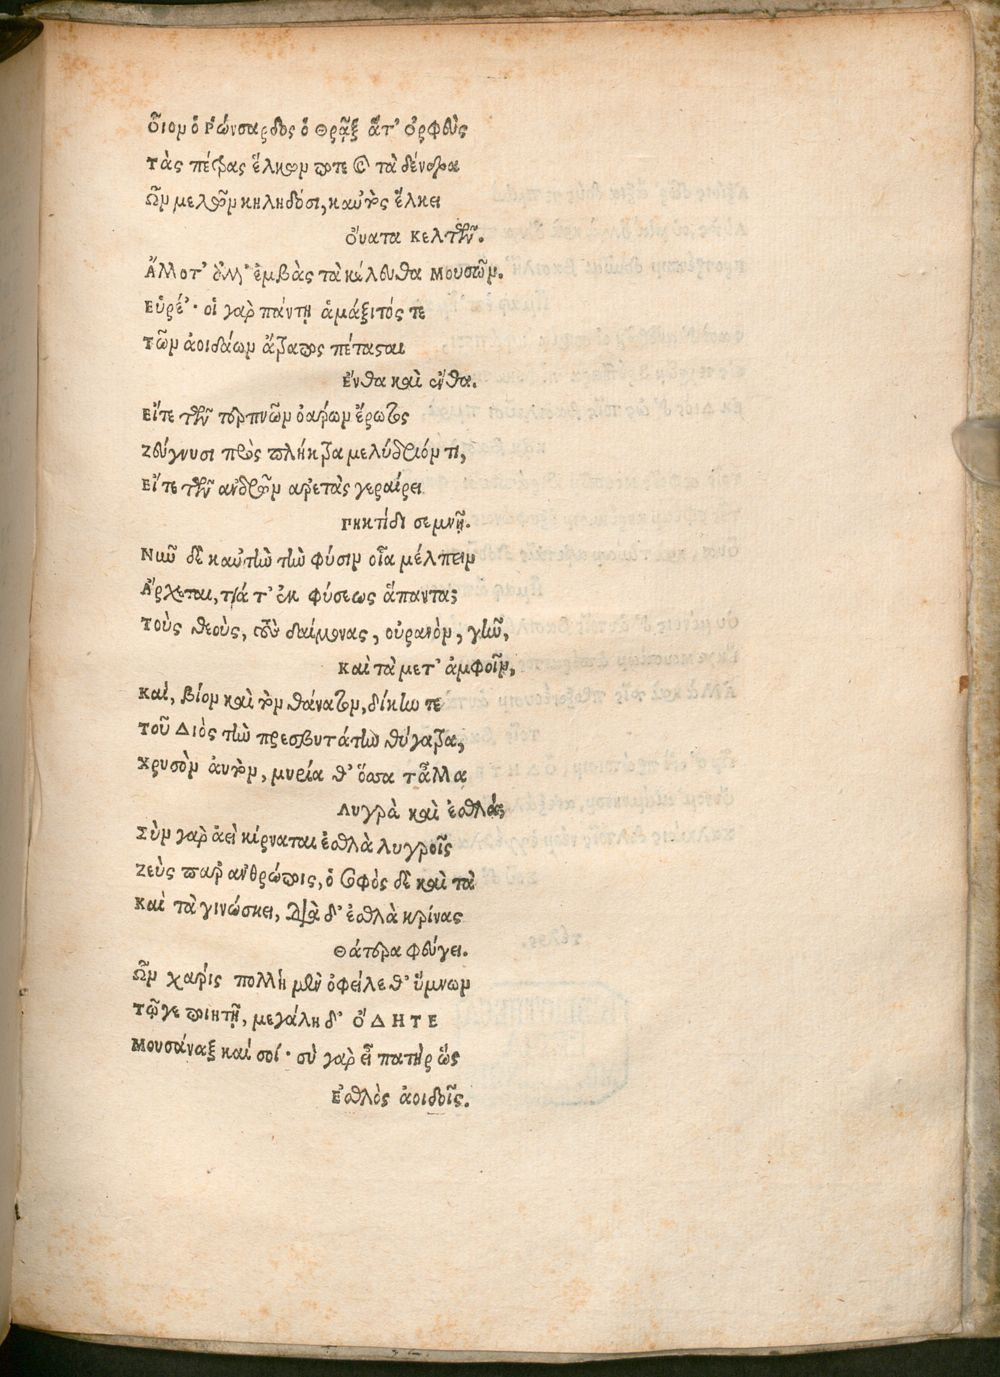 Οἷον ὁ Ῥώνσαρδος ὁ Θρᾷξ ἅτ' Ὀρφεὺς
Τὰς πέτρας ἕλκων ποτε καὶ τὰ δένδρα
Ὧν μελῶν κηληδόσι, καὐτὸς ἕλκει
Οὔατα Κελτῶν.
Ἄλλοτ' ἄλλ' ἐμβὰς τὰ κέλευθα Μουσῶν.
Εὑρέ'· οἱ γὰρ πάντῃ ἁμάξιτός τε
Τῶν ἀοιδάων ἄβατος πέτασαι
Ἔνθα καὶ ἔνθα.
Εἴτε τῶν τερπνῶν ὀάρων ἔρωτος
Ζεύγνυσι πρὸς πλῆκτρα μελύδριόν τι,
Εἴτε τῶν ἀνδρῶν ἀρετὰς γεραίρει
Πηκτίδι σεμνῇ.
Νῦν δὲ καὐτὴν τὴν φύσιν οἷα μέλπειν
Ἄρχεται, τά τ' ἐκ φύσεως ἅπαντα;
Τοὺς θεοὺς, τοὺς δαίμονας, οὐρανὸν, γῆν,
Καὶ τὰ μετ' ἀμφοῖν,
Καὶ, βίον καὶ τὸν θάνατον, δίκην τε
Τοῦ Διὸς τὴν πρεσβυτάτην θύγατρα,
Χρυσὸν αὐτὸν, μυρία θ' ὅσσα τἆλλα
Λυγρὰ καὶ ἐσθλά;
Σὺν γὰρ ἀεὶ κίρναται ἐσθλὰ λυγροῖς
Ζεὺς παρ' ἀνθρώποις, ὁ σοφὸς δὲ καὶ τὰ
Καὶ τὰ γινώσκει, διὰ δ' ἐσθλὰ κρίνας
Θάτερα φεύγει.
Ὧν χάρις πολλὴ μὲν ὀφείλεθ' ὕμνων
Τῷγε ποιητῇ, μεγάλη δ' Ὀ ΔΗΤΕ
Μουσάναξ καί σοί· σὺ γὰρ εἶ πατὴρ ὣς
Ἐσθλὸς ἀοιδοῖς.